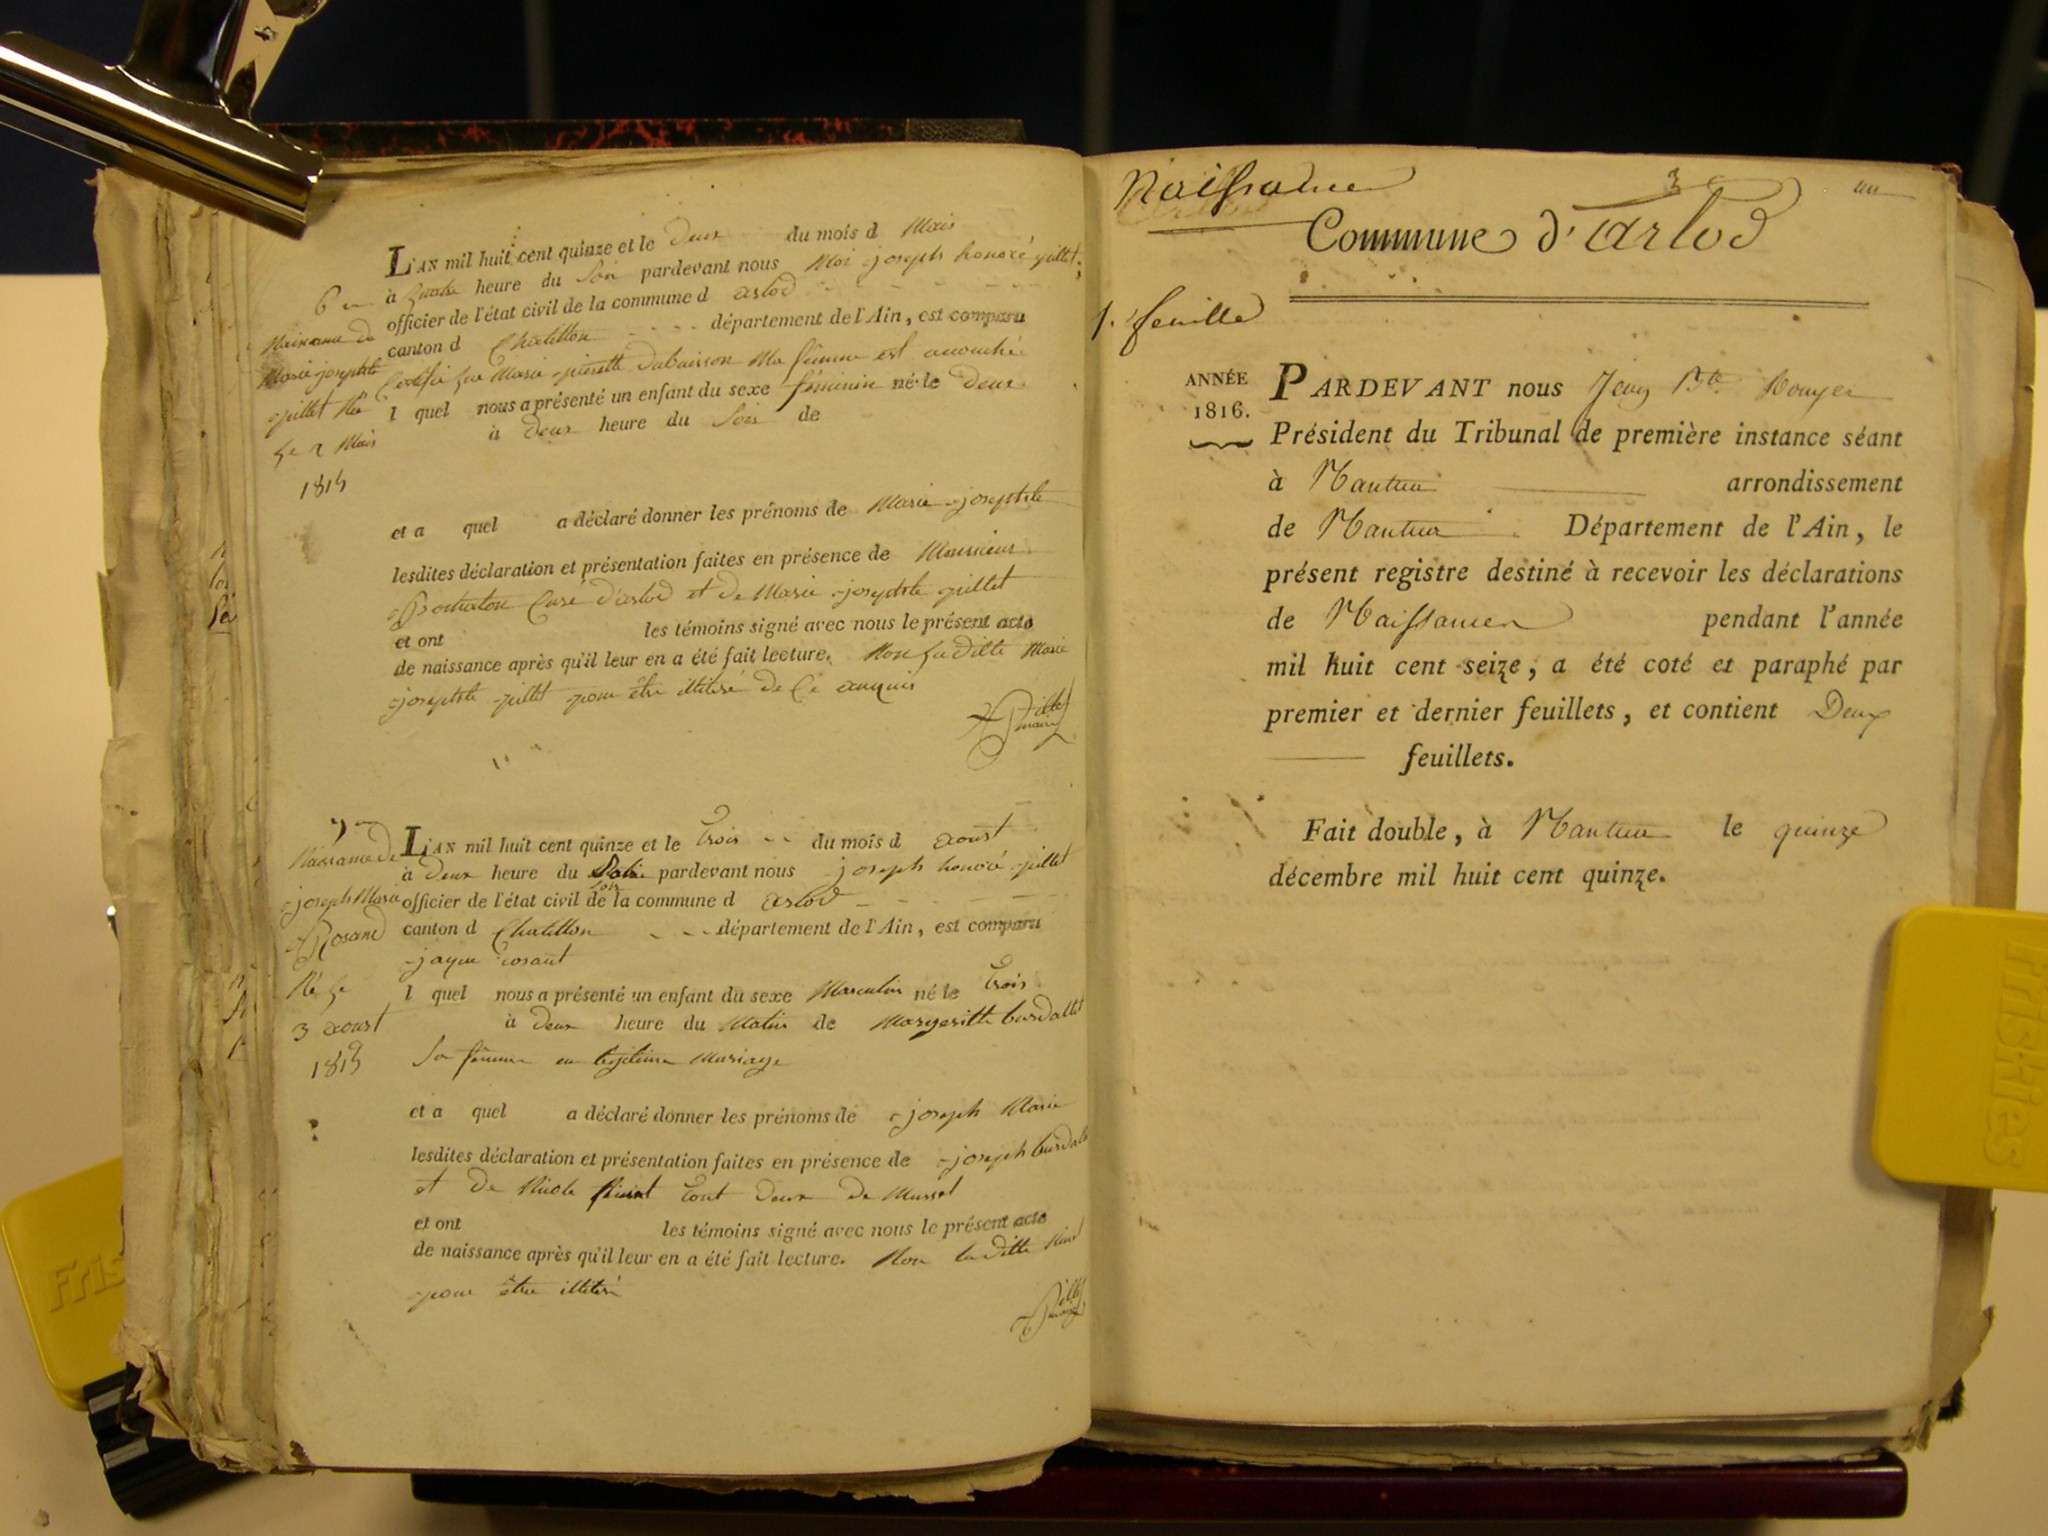 6
Naissance de
Marie josephte
pillet Née
Le 2 Mais
1815
L'AN mil huit cent quinze et le Deux du mois d Mais
à heure du Soir pardevant nous Moi joseph honoré pillet
officier de l'état civil de la commune d arlod
canton d Chatillon département de l'Ain, est comparu
Marie pierrette Dubuisson Ma femme est accouché
l quel nous a présenté un enfant du sexe féminin né le Deux
à Deux heure du Soir de
et a quel a déclaré donner les prénoms de Marie josephte
lesdites déclaration et présentation faites en présence de Monsieur
Curé d'arlod et de Marie josephte pillet
et ont les témoins signé avec nous le présent acte
de naissance après qu'il leur en a été fait lecture. Non La ditte Marie
josephte pillet pour être illitéré de Ce
maire
7
Naissance de
joseph Marie
Rosand
Né Le
3 aoust
1815
L'AN mil huit cent quinze et le trois du mois d aoust
à Deux heure du Soir pardevant nous joseph honoré pillet
officier de l'état civil de la commune d arlod
canton d Chatillon département de l'Ain, est comparu
rosant
l quel nous a présenté un enfant du sexe Masculin né le trois
à Deux heure du Matin de Margeritte burdallet
Sa femme en légitime Mariage
et a quel a déclaré donner les prénoms de joseph Marie
lesdites déclaration et présentation faites en présence de joseph
et De Nicole tout Deux De Mussel
et ont les témoins signé avec nous le présent acte
de naissance après qu'il leur en a été fait lecture. Non la ditte
pour être illitéré
Naissance
3
un
Commune d'Arlod
1. feuille
ANNÉE
1816.
PARDEVANT nous Jean Bte Rouyer
Président du Tribunal de première instance séant
à Nantua arrondissement
de Nantua Département de l'Ain, le
présent registre destiné à recevoir les déclarations
de Naissances pendant l'année
mil huit cent seize, a été coté et paraphé par
premier et dernier feuillets, et contient Deux
feuillets.
Fait double, à Nantua le quinze
décembre mil huit cent quinze.
Friskies
Fris